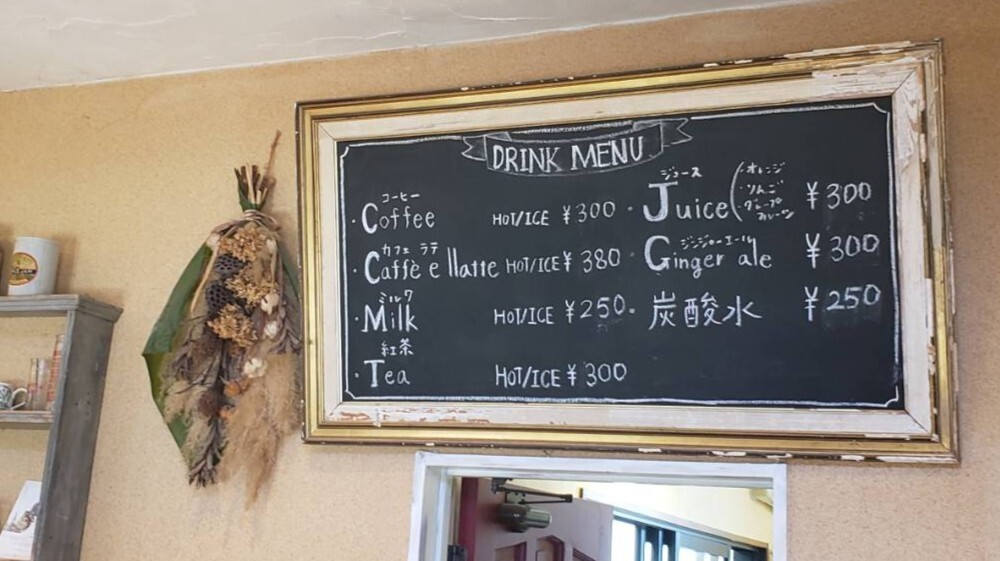 DRINK MENU
コーヒー
・Coffee HOT/ICE ¥300
カフェ ラテ
・Caffè e llatte HOT/ICE ¥380
ミルク
・Milk HOT/ICE ¥250
紅茶
・Tea HOT/ICE ¥300
ジュース
・Juice ( ・オレンジ ¥300
・りんご
・グレープ
フルーツ
ジンジャーエール
Ginger ale ¥300
・炭酸水 ¥250